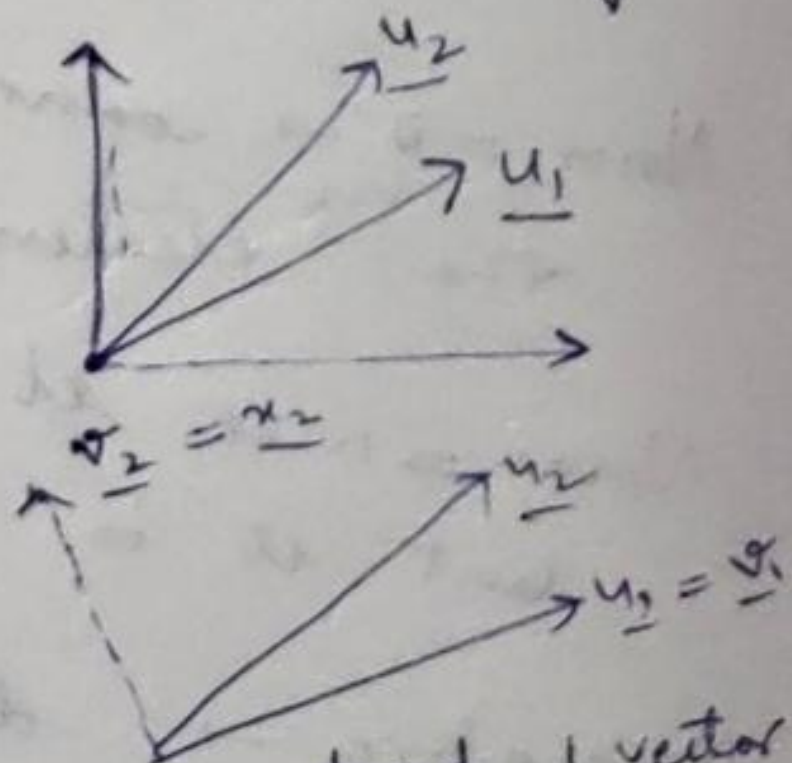 u₂
u₁
v₂ = x₂
u₂
u₁ = v₁
vector